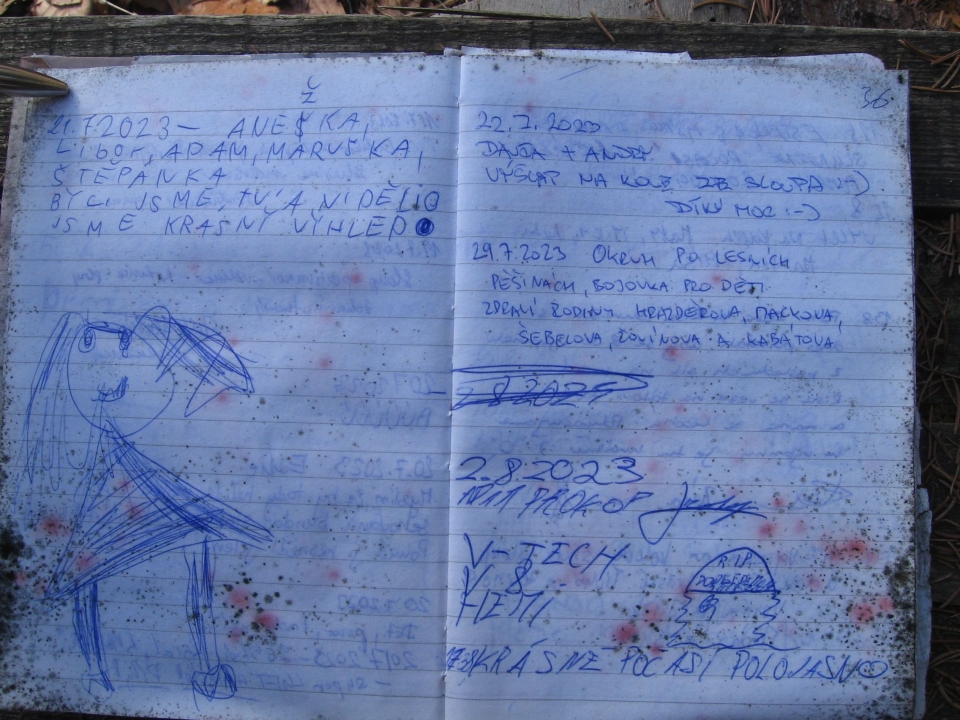 Ž
21.7.2023 – ANEŠKA,
Libor, ADAM, MARUŠKA,
ŠTĚPÁNKA
BYLI JSME TU A VIDĚLI
JSME KRASNÝ VÝHLED
36
22.7.2023
DÁŠA + ANDY
VÝŠLAP NA KOLE ZE SLOUPA :)
DÍKY MOC :-)
29.7.2023 OKRUH PO LESNÍCH
PĚŠINÁCH, BOJOVKA PRO DĚTI
ZDRAVÍ RODINY HRAZDĚROVA, MACKOVA,
ŠEBELOVA, A KABÁTOVA
2.8.2023
PROKOP
V-TECH
V8
HEMI
R.I.P.
KRÁSNE POČASÍ POLOJASNO